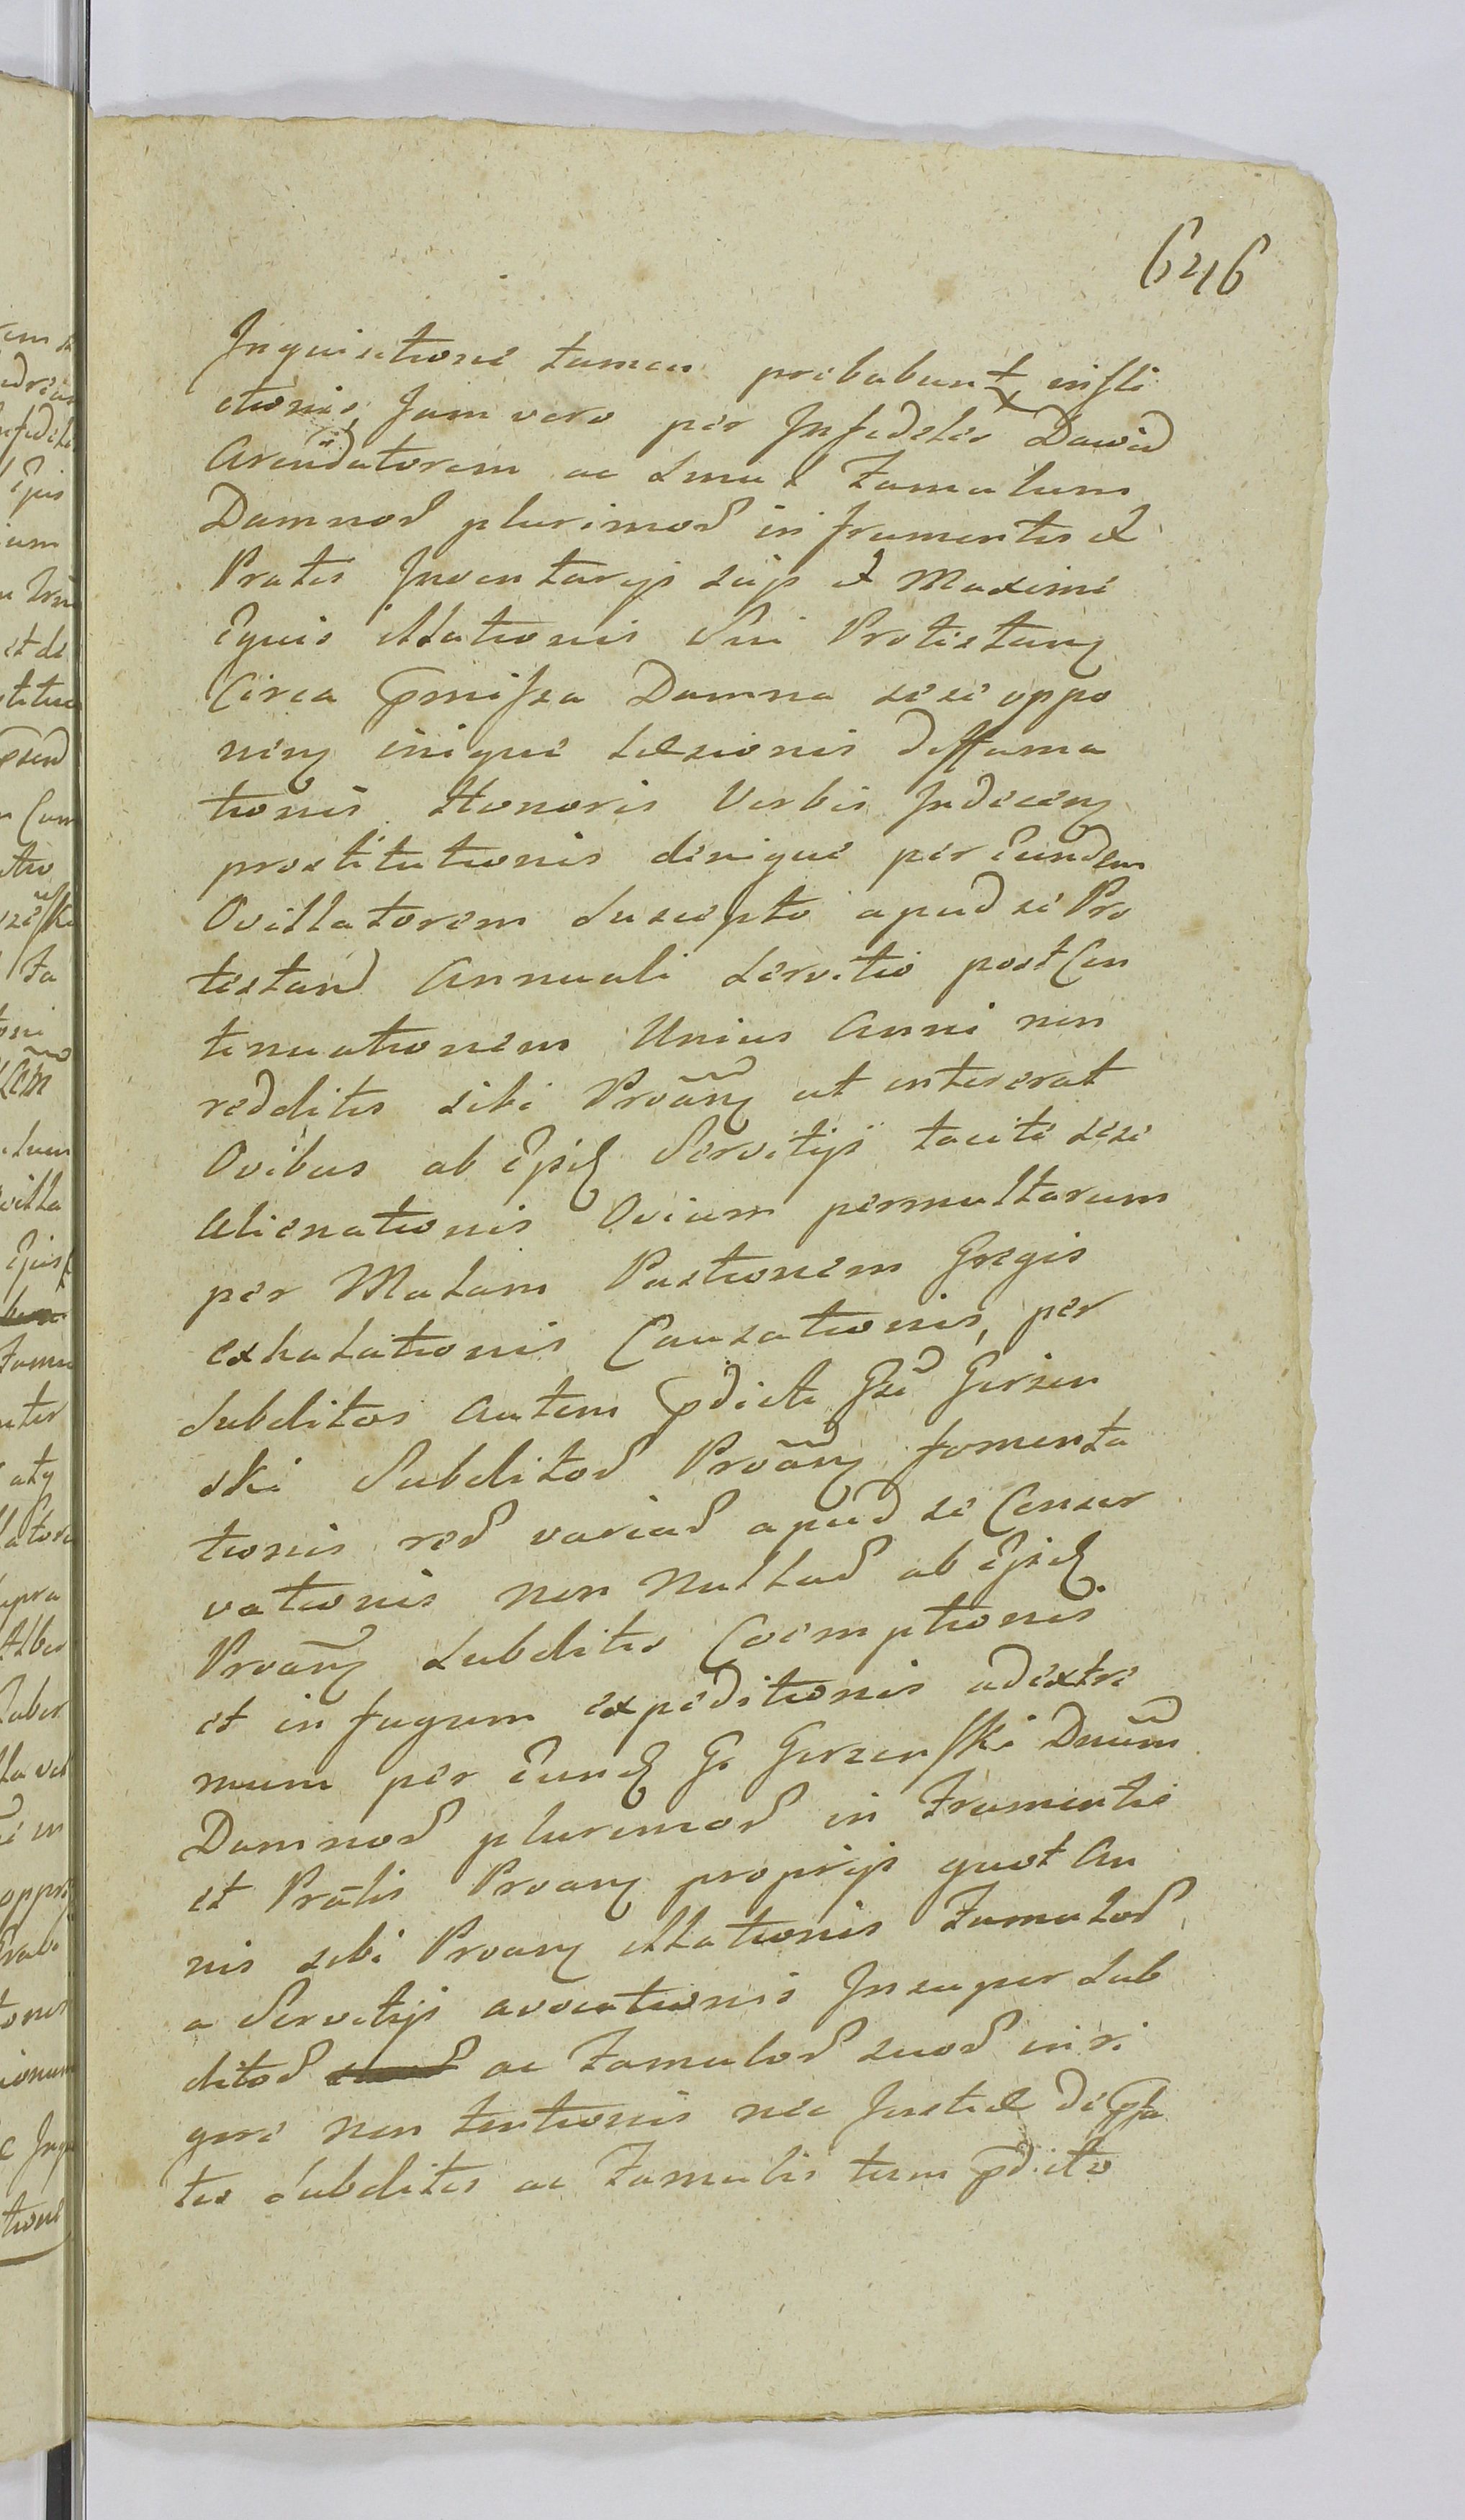 646
Inquisitione tamen probabunt, infli
ctionis, Jam vero per Infidelēs Dawid
Arendatorem ac simul Famulum
Damnoꝝ plurimoꝝ in frumentis et
Pratis Inventarijs suijs et Maxime
Equis illationis Sui Protestanꝭ
Circa p̄missa Damna sese oppo
nenꝭ inique Læsionis diffama
tionis Honoris Verbis Indecenꝭ
prostitutionis denique per Eundem
Ovillatorem suscepto apud se Pro
testanꝺ Annuali servitio post Con
tinuationem Unius Anni non
redditis sibi Proãnꝭ ut intererat
Ovibus ab Ejsdꝭ Servitijs tacite sese
Alienationis Ovium permultarum
per Malam Pastionem Gregis
exhalationis Causationis, per
subditos Autem p̄dicti Gsi Girzen
ski Subditoꝝ Proãnꝭ fomenta
tionis reꝝ variaꝝ apud se Conser
vationis non nullaꝝ ab Ejsdꝭ
Proãnꝭ subditis Coemptionis
et in fugam expeditionis ad extre
mum per Eundꝭ G. Girzenski Dnũm
Damnoꝝ plurimoꝝ in Frumentis
et Pratis Proanꝭ proprijs quot An
nis sibi Proanꝭ illationis Famuloꝝ
a Servitijs avocationis Insuper sub
ditoꝝ ac Famuloꝝ suoꝝ in ri
gore non tentionis nec Justitiæ de p̄fa
tis subditis ac Famulis tum p̄dicto